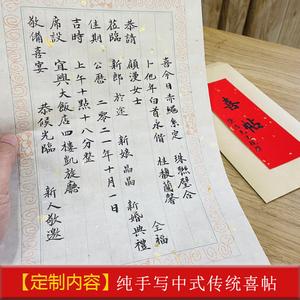 喜今日赤繩系定 珠聯璧合
卜他年白首永偕 桂馥蘭馨
全福
恭請 顧漢女士
蒞臨 新郎 新娘晶晶 新婚典禮
佳期 公曆二零二一年十月一日
吉時 上午十點十八分整
席設 宜興大飯店四樓凱旋廳
敬備喜宴 恭候光臨 新人敬邀
喜帖
【定制内容】纯手写中式传统喜帖